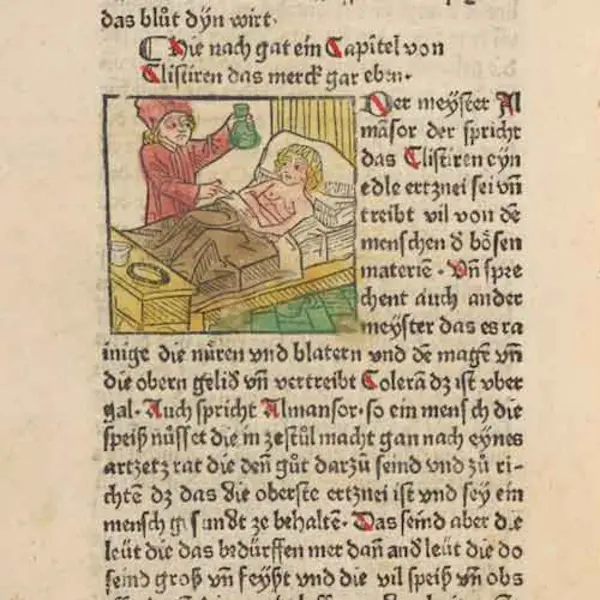 das blůt dẏn wirt·
Hie nach gat ein Capitel von
Clistiren das merck gar eben·
Der meẏster Al
māsor der spricht
das Clistiren eẏn
edle ertznei sei vñ
treibt vil von dē
menschen d bösen
materiē· Vñ spre
chent auch ander
meẏster das es ra
inige die nůren vnd blatern vnd dē magē vñ
die obern gelid vñ vertreibt Colerā dz ist vber
gal· Auch spricht Almansor· so ein mensch die
speiß nüsset die in ze stůl macht gan nach eẏnes
artzetz rat die deñ gůt darzů seind vnd zů ri-
chtē dz das die oberste ertznei ist vnd sey ein
mensch gesundt ze behaltē· Das seind aber die
leüt die das bedürffen mer dañ and leüt die do
seind groß vñ feyßt vnd die vil speiß vñ obs